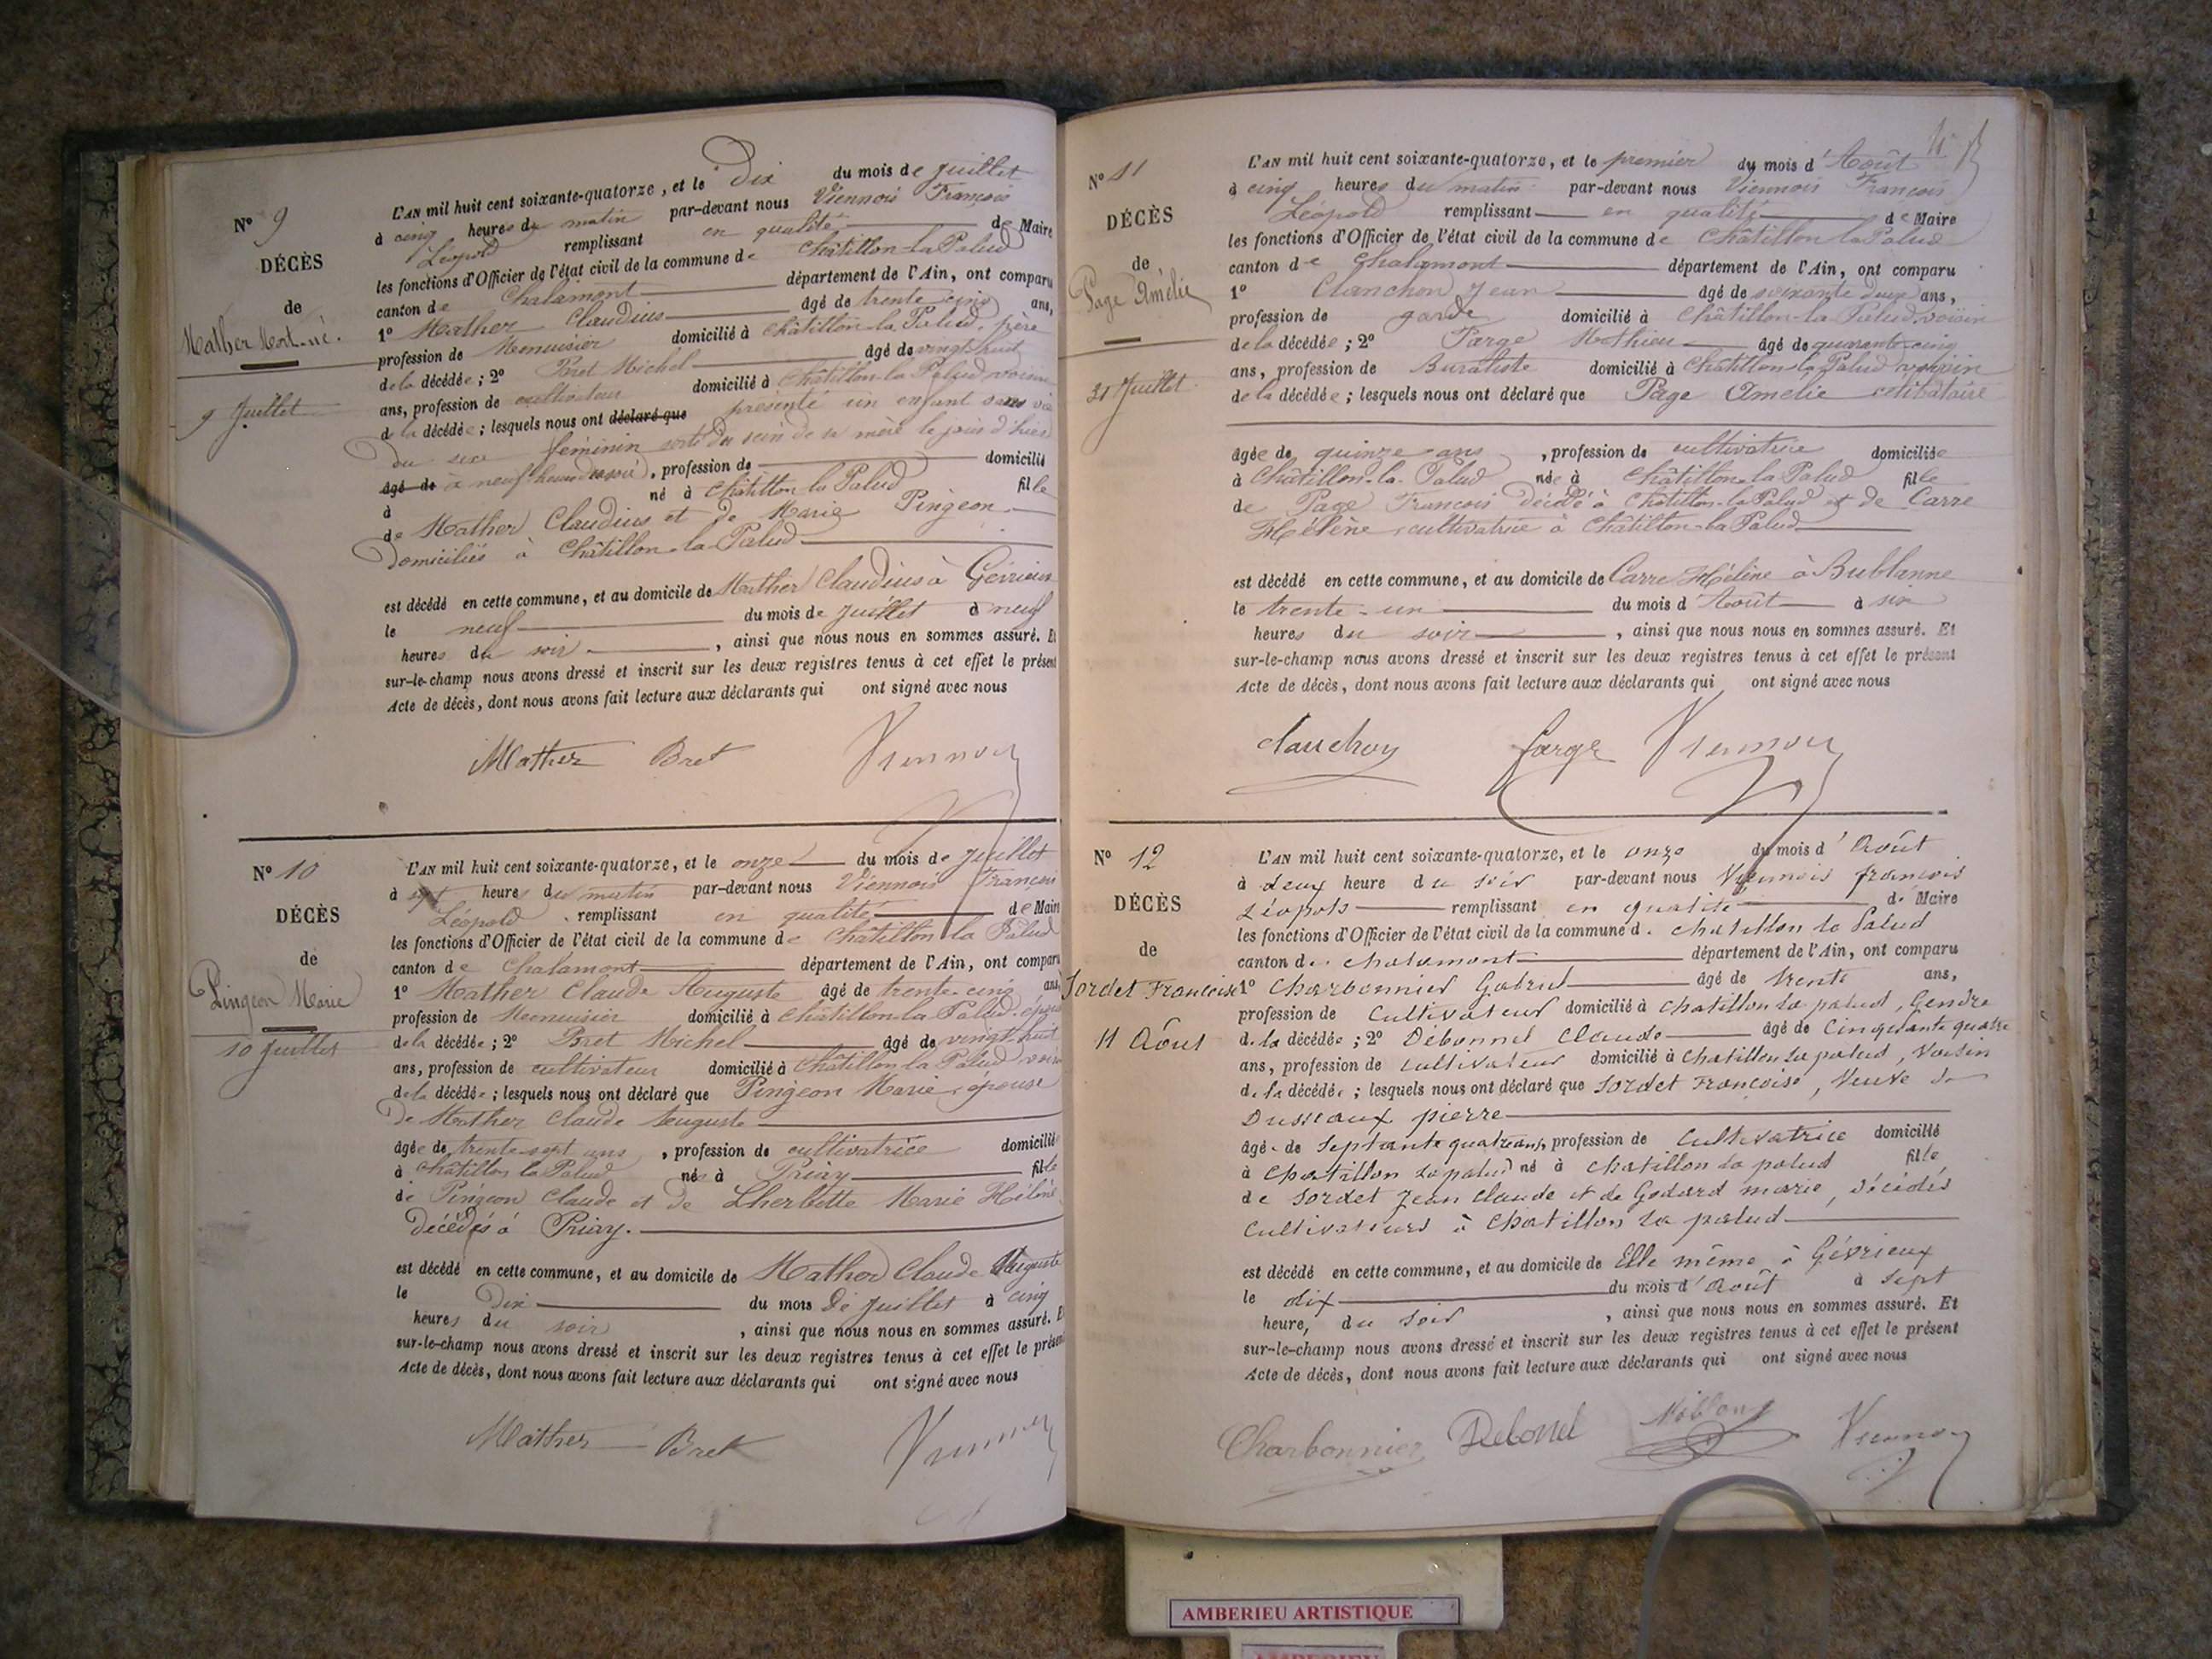 N° 9
DÉCÈS
de
Mather Mort-né.
9 Juillet
L'AN mil huit cent soixante-quatorze, et le Dix du mois de Juillet
à cinq heures du matin par-devant nous Viennois François
Léopold remplissant en qualité de Maire
les fonctions d'Officier de l'état civil de la commune de Châtillon-la-Palud
canton de Chalamont département de l'Ain, ont comparu
1° Mather Claudius âgé de trente cinq ans,
profession de Menuisier domicilié à Châtillon-la-Palud, père
de la décédée; 2° Bret Michel âgé de vingt-huit
ans, profession de cultivateur domicilié à Châtillon-la-Palud voisin
de la décédée; lesquels nous ont déclaré que présenté un enfant sans vie
du sexe féminin sorti du sein de sa mère le jour d'hier
âgé de à neuf heures du soir, profession de domicilié
à né à Châtillon la Palud fille
de Mather Claudius et de Marie Pingeon
Domiciliés à Châtillon-la-Palud
est décédé en cette commune, et au domicile de Mather Claudius à Gévrieux
le neuf du mois de Juillet à neuf
heures du soir, ainsi que nous nous en sommes assuré. Et
sur-le-champ nous avons dressé et inscrit sur les deux registres tenus à cet effet le présent
Acte de décès, dont nous avons fait lecture aux déclarants qui ont signé avec nous
Mather Bret Viennois
N° 10
DÉCÈS
de
Pingeon Marie
10 Juillet
L'AN mil huit cent soixante-quatorze, et le onze du mois de Juillet
à sept heures du matin par-devant nous Viennois François
Léopold remplissant en qualité de Maire
les fonctions d'Officier de l'état civil de la commune de Châtillon la Palud
canton de Chalamont département de l'Ain, ont comparu
1° Mather Claude Auguste âgé de trente-cinq ans
profession de Menuisier domicilié à Châtillon la Palud, époux
de la décédée; 2° Bret Michel âgé de vingt huit
ans, profession de cultivateur domicilié à Châtillon la Palud voisin
de la décédée; lesquels nous ont déclaré que Pingeon Marie épouse
de Mather Claude Auguste
âgée de trente-sept ans, profession de cultivatrice domiciliée
à Châtillon la Palud née à Priay fille
de Pingeon Claude et de Lherbette Marie Hélène
décédés à Priay.
est décédé en cette commune, et au domicile de Mather Claude Auguste
le Dix du mois de Juillet à cinq
heures du soir, ainsi que nous nous en sommes assuré. Et
sur-le-champ nous avons dressé et inscrit sur les deux registres tenus à cet effet le présent
Acte de décès, dont nous avons fait lecture aux déclarants qui ont signé avec nous
Mather Bret Viennois
N° 11
DÉCÈS
de
Page Amélie
31 Juillet
L'AN mil huit cent soixante-quatorze, et le premier du mois d'Août
à cinq heures du matin par-devant nous Viennois François
Léopold remplissant en qualité de Maire
les fonctions d'Officier de l'état civil de la commune de Châtillon la Palud
canton de Chalamont département de l'Ain, ont comparu
1° Clanchon Jean âgé de soixante deux ans,
profession de garde domicilié à Châtillon-la-Palud voisin
de la décédée; 2° Farge Mathieu âgé de quarante cinq
ans, profession de Buraliste domicilié à Châtillon-la-Palud voisin
de la décédée; lesquels nous ont déclaré que Page Amélie célibataire
âgée de quinze ans, profession de cultivatrice domiciliée
à Châtillon-la-Palud née à Châtillon-la Palud fille
de Page François Décédé à Châtillon-la-Palud et de Carre
Hélène cultivatrice à Châtillon-la Palud
est décédé en cette commune, et au domicile de Carre Hélène à Bublanne
le trente-un du mois d'Août à six
heures du soir, ainsi que nous nous en sommes assuré. Et
sur-le-champ nous avons dressé et inscrit sur les deux registres tenus à cet effet le présent
Acte de décès, dont nous avons fait lecture aux déclarants qui ont signé avec nous
Clauchon farge Viennois
N° 12
DÉCÈS
de
Sordet Francoise
11 Août
L'AN mil huit cent soixante-quatorze, et le onze du mois d'Août
à deux heure du soir par-devant nous Viennois françois
Léopols remplissant en qualité de Maire
les fonctions d'Officier de l'état civil de la commune d. chatillon la Palud
canton de chalamont département de l'Ain, ont comparu
1° Charbonnier Gabriel âgé de trente ans,
profession de Cultivateur domicilié à chatillon la palud, Gendre
de la décédée; 2° Débonnel Claude âgé de Cinquante quatre
ans, profession de cultivateur domicilié à Chatillon la palud, Voisin
de la décédée; lesquels nous ont déclaré que Sordet Francoise, Veuve de
Dusseaux pierre
âgé de Septante quatre ans, profession de Cultivatrice domicilié
à Chatillon la palud né à chatillon la palud fille
de Sordet Jean claude et de Godard marie, décédés
Cultivateurs à Chatillon la palud
est décédé en cette commune, et au domicile de Elle même à Gévrieux
le dix du mois d'Août à Sept
heure, du soir, ainsi que nous nous en sommes assuré. Et
sur-le-champ nous avons dressé et inscrit sur les deux registres tenus à cet effet le présent
Acte de décès, dont nous avons fait lecture aux déclarants qui ont signé avec nous
Charbonnier Debonel Viennois
AMBERIEU ARTISTIQUE
AMBERIEU